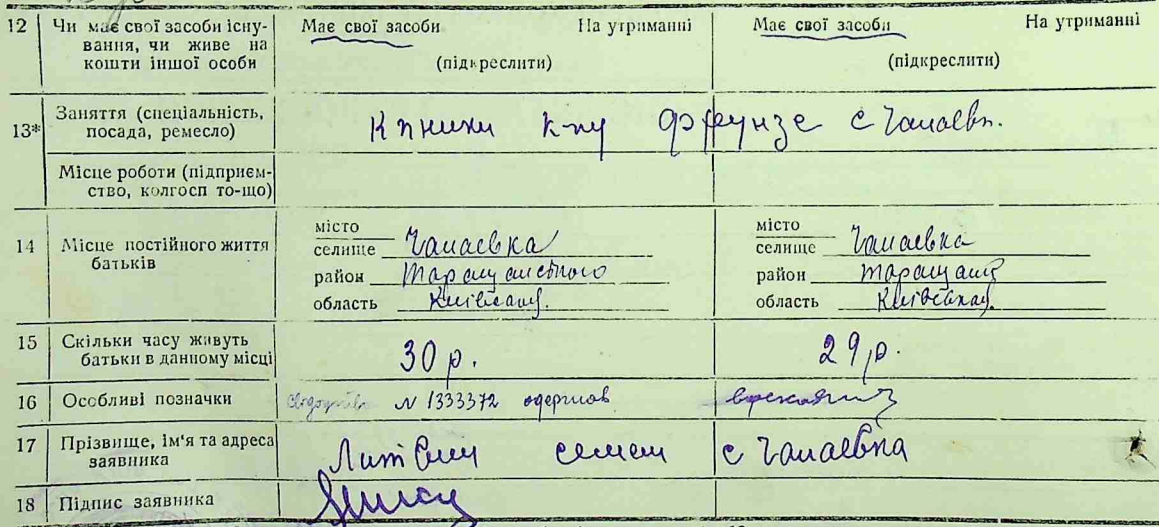 12 Чи має свої засоби існування, чи живе на кошти іншої особи Має свої засоби На утриманні (підкреслити) Має свої засоби На утриманні (підкреслити)
13* Заняття (спеціальність, посада, ремесло) к-пу Фрунзе с Чапаевк.
Місце роботи (підприємство, колгосп то-що)
14 Місце постійного життя батьків
місто
селище Чапаевка
район
область
місто
селище Чапаевка
район
область
15 Скільки часу живуть батьки в данному місці 30 р. 29 р.
16 Особливі позначки N 1333372 одержав
17 Прізвище, ім'я та адреса заявника Литвин семен с Чапаевка
18 Підпис заявника